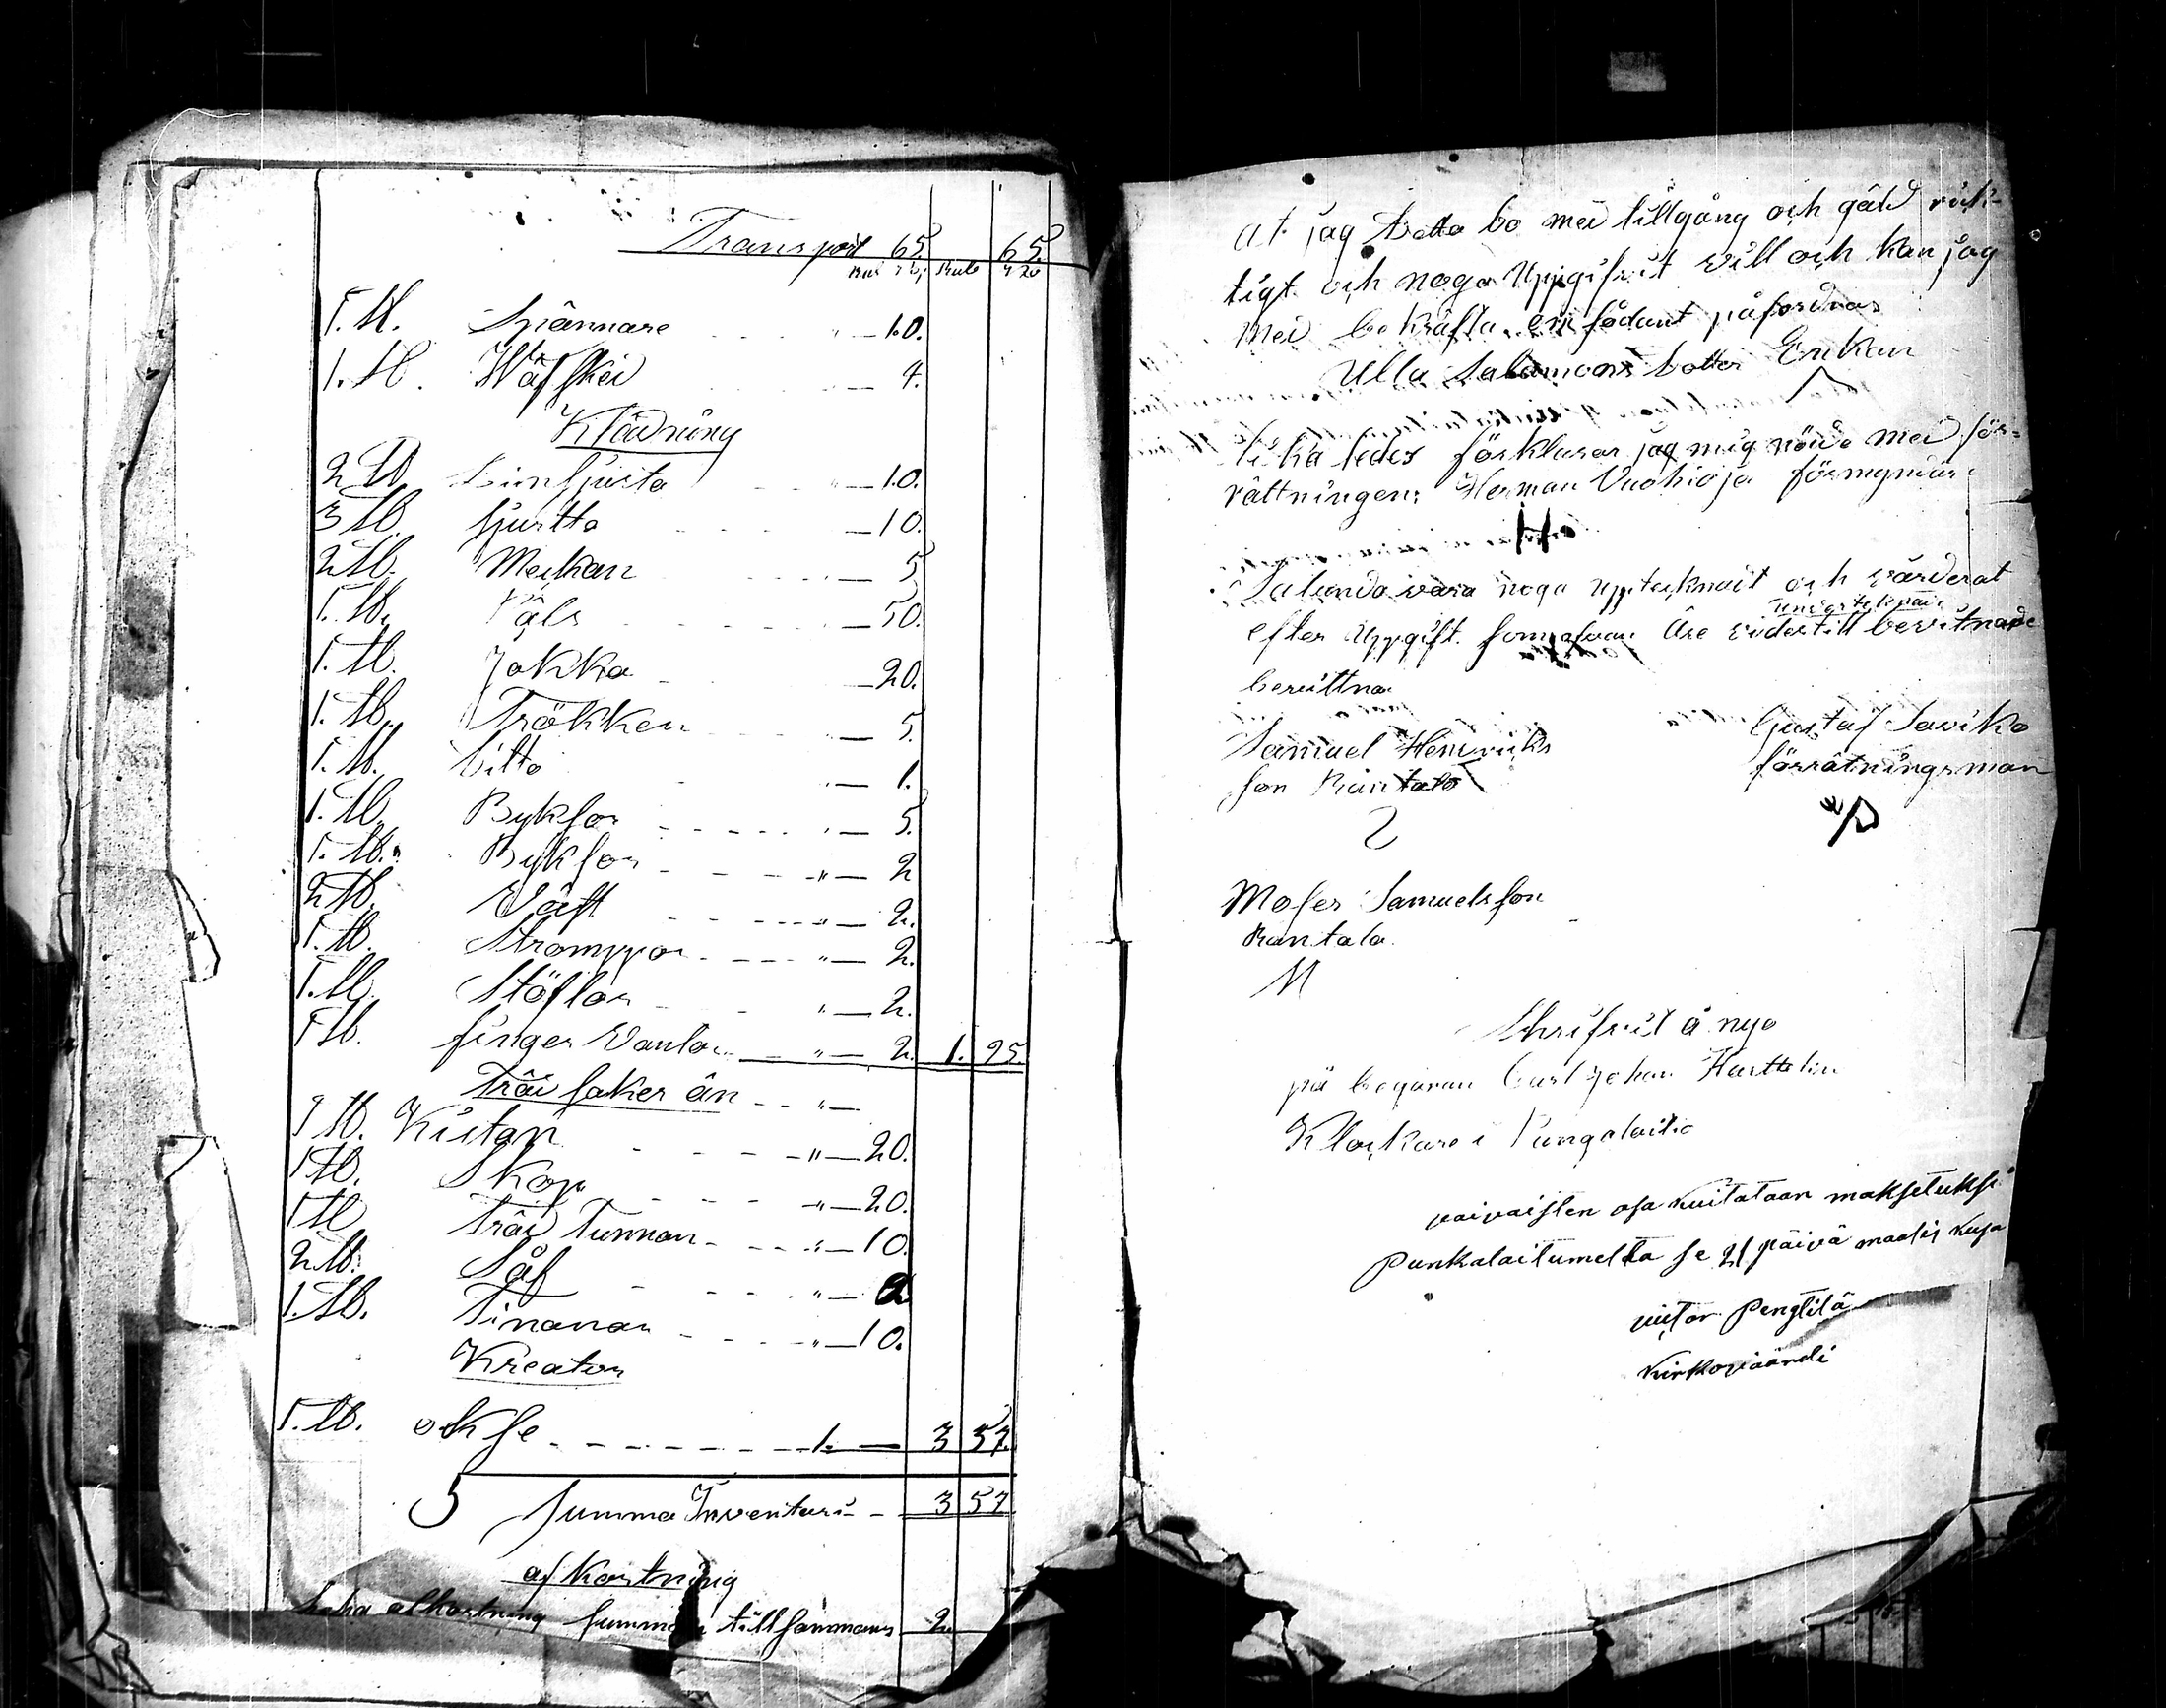 Transport 65. 65.
1. St. Spännare " — 10.
1. St. Wäfsked — 4.
Klädning
2 St. Limsjurta " — 10.
3 St. sjurtta — 10.
2 St. Meikan — 5
1. St. Päls — 50.
1. St. Jakka — 20.
1. St. Trökken — 5.
1. St. Ditto — 1.
1. St. Byksor — 5.
1. St. Byksor " — 2
2 St. Väst " — 2.
1. St. Stromppor " — 2.
1. St. Stöflor " — 2.
1 St. finger Vantar " — 2. 1. 95.
Träi saker än " —
1 St. Kistan " — 20.
1 St. Skåp " — 20.
1 St. Träi Tunnan " — 10.
2 St. Såf " — 2
1. St. Tinanan " — 10.
Kreatur
1. St. okse 1. — 3 57.
Summa Inventari 3 57
afkortning
afkortning summan tillsammans 2.
at jag detta bo med tillgång och gäld rik-
tigt och noga Uppgifvit vill och kan jag
med bekräfta, om sådant påfordras
Ulla Salamons dotter Erikan
lika ledes förklarar jag mig nöida med för-
rättningen: Herman Vuohioja förmyndare
H
Salunda vara noga upptecknait och värderat
undertekpaia
efter Uppgift. som ofvan Are vidertill bevitnade
bevittna
Samuel Henriks
son Rantala
Gustaf Saviko
förrätningsman
Moses Samuelsson
Rantala
M
Skrifvit å nyo
på begäran Carl Johan Harttelin
Klockare i Pungalaitio
vaivaisten osa kuitataan maksetuksi
Punkalaitumelta se 21 päivä maalis kuSa
viktor Penttilä
kirkoväärdi